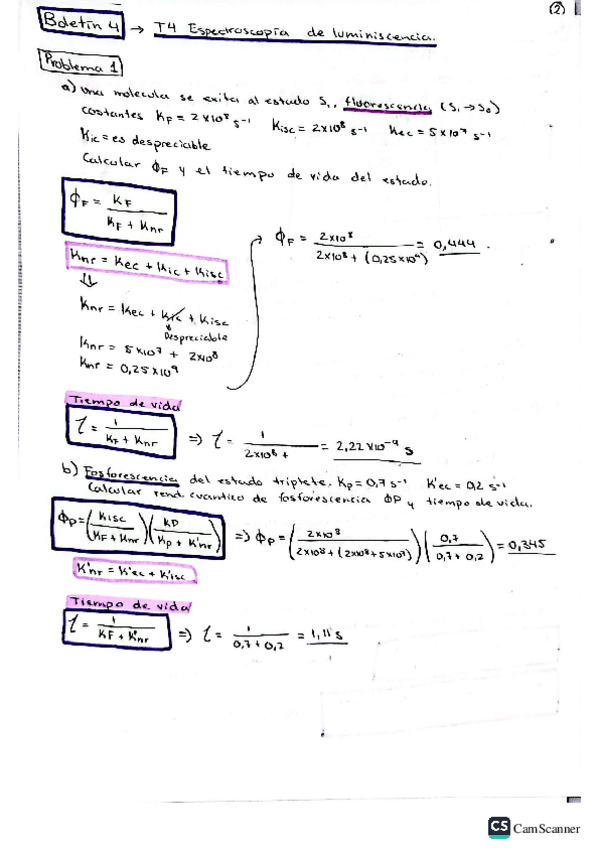 (2)
Boletín 4 → T4 Espectroscopía de luminiscencia.
Problema 1
a) una molecula se exita al estado S₁, fluorescencia (S₁→S₀)
costantes KF = 2x10⁸ s⁻¹ Kisc = 2x10⁸ s⁻¹ Kec = 5x10⁷ s⁻¹
Kic = es despreciable
Calcular ϕF y el tiempo de vida del estado.
ϕF = KF / (KF + Knr)
Knr = Kec + Kic + Kisc
⇓
Knr = Kec + Kic + Kisc
Despreciable
Knr = 5x10⁷ + 2x10⁸
Knr = 0,25x10⁹
→ ϕF = 2x10⁸ / (2x10⁸ + (0,25x10⁹)) = 0,444.
Tiempo de vida
τ = 1 / (KF + Knr) ⇒ τ = 1 / (2x10⁸ + = 2,22x10⁻⁹ s
b) Fosforescencia del estado triplete. Kp = 0,7 s⁻¹ K'ec = 0,2 s⁻¹
Calcular rend. cuantico de fosforescencia ϕP y tiempo de vida.
ϕP = (Kisc / (KF + Knr)) (KP / (Kp + K'nr)) ⇒ ϕP = (2x10⁸ / (2x10⁸ + (2x10⁸ + 5x10⁷))) (0,7 / (0,7 + 0,2)) = 0,345
K'nr = K'ec + K'isc
Tiempo de vida
τ = 1 / (KF + K'nr) ⇒ τ = 1 / (0,7 + 0,2) = 1,11 s
CS CamScanner